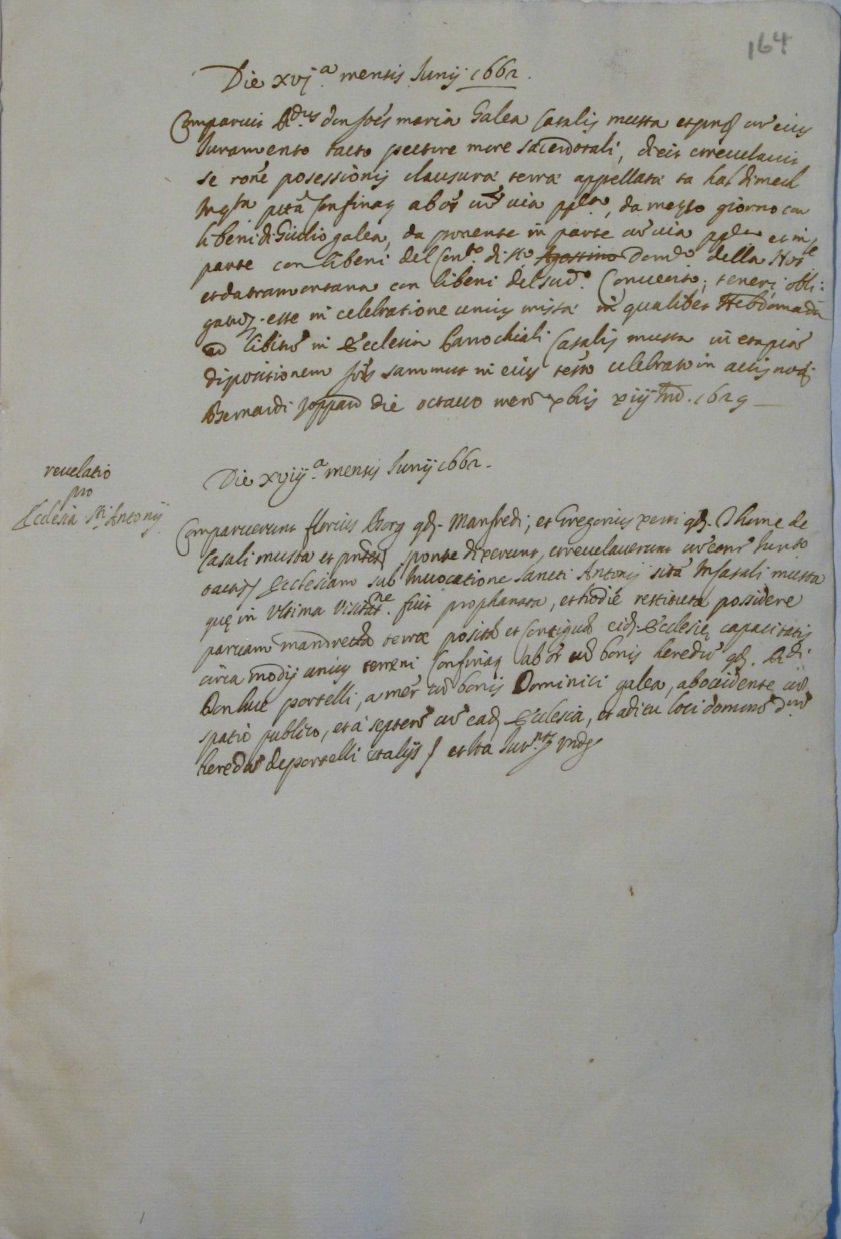 164
Die xvj.a mensis Junij 1662.
Comparuit R.dus don Joes maria Galea Casalis musta et cum eius
Juramento tacto pectore more sacerdotali, dicit et revelavit
se rone posessionis clausura terra appellata ta
confinan ab or cum via pp.ca, da mezzo giorno con
li beni di Giulio galea, da ponente in parte cum via pp.ca et in
parte con li beni del Con.to di S.to Agostino Dom.co della
et da tramontana con li beni del sud.o Convento; teneri obli:
gatus esse in celebratione unius missa in qualibet Hebdomada
ad libitum in Ecclesia Parrochiali Casalis musta
dispositionem Jois sammut in eius testo celebrato in actis not.
Bernardi die octavo mens xbris xiij Ind. 1629
revelatio
pro
Ecclesia Sti Antonij
Die xviij.a mensis Junij 1662.
Comparuerunt florius Borg qd. Manfredi; et Gregorius xerri qd. Thome de
Casali musta et sponte dixerunt, et revelaverunt cum eorum Jurto
tactis Ecclesiam sub Invocatione Sancti Antonij sita In Casali musta
que in ultima visitat.ne fuit prophanata, et hodie restituta possidere
parvam mandrecta terra posita et contigua eid. Ecclesie, capacitatis
circa modij unius terreni confinan ab or cum bonis heredum qd. R.di
Don luce portelli, a mer cum bonis Dominici galea, ab occidente cum
spatio publico, et a septent cum ead. Ecclesia, et
heredum de portelli et alijs et Ita Jur.nt Unde